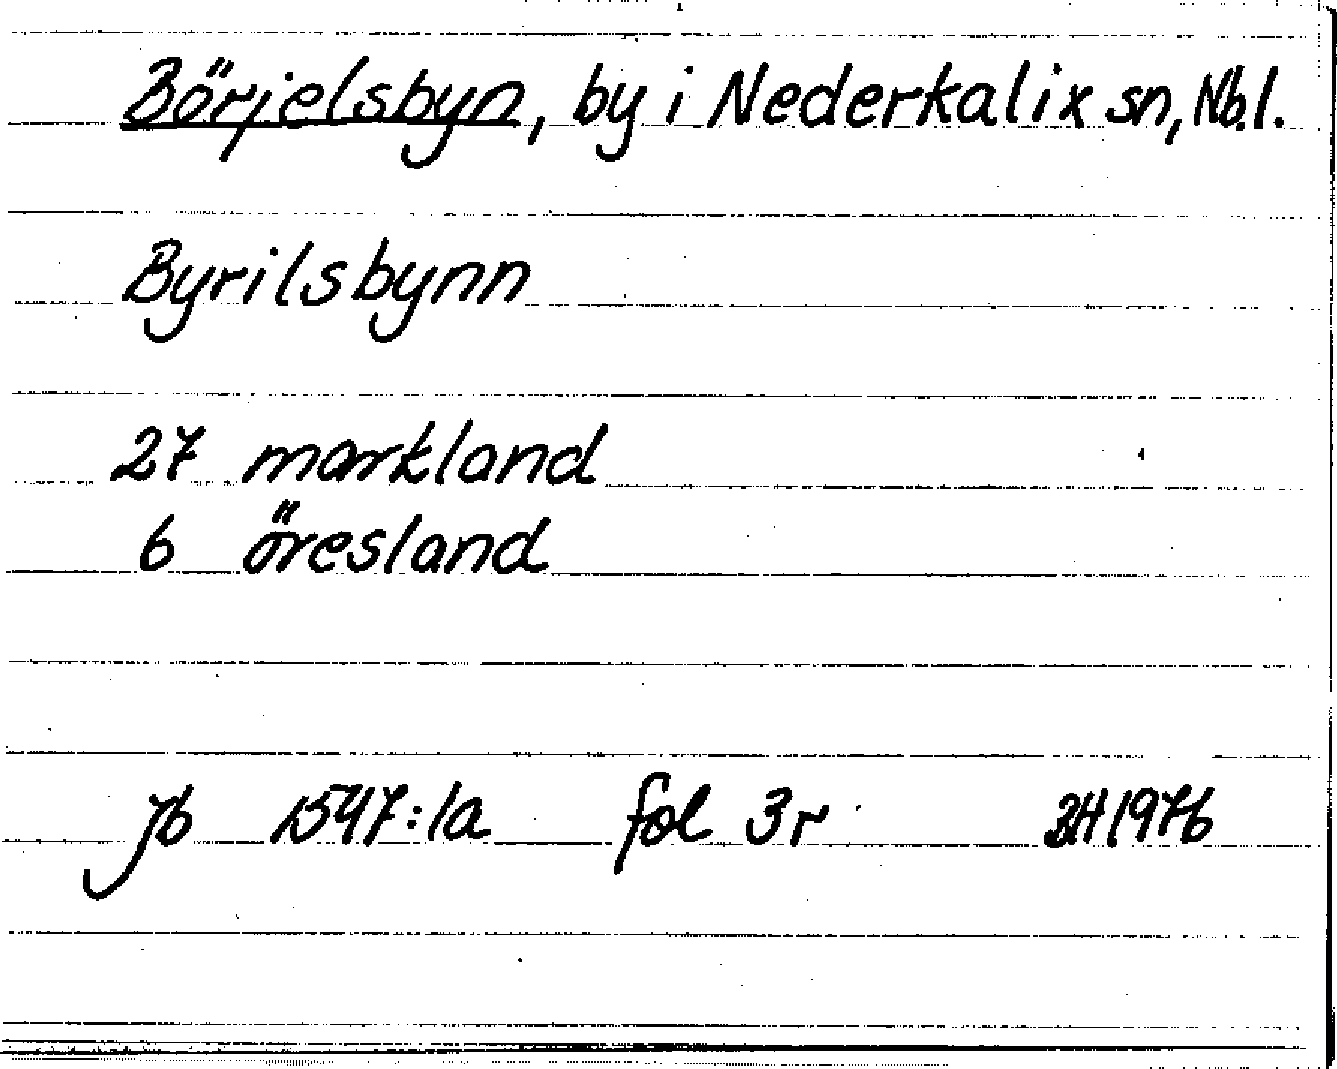 Börjelsbyn, by i Nederkalix sn, Nb.l.
Byrilsbynn
27 markland
6 öresland
jb 1547:1a fol 3r BH 1976